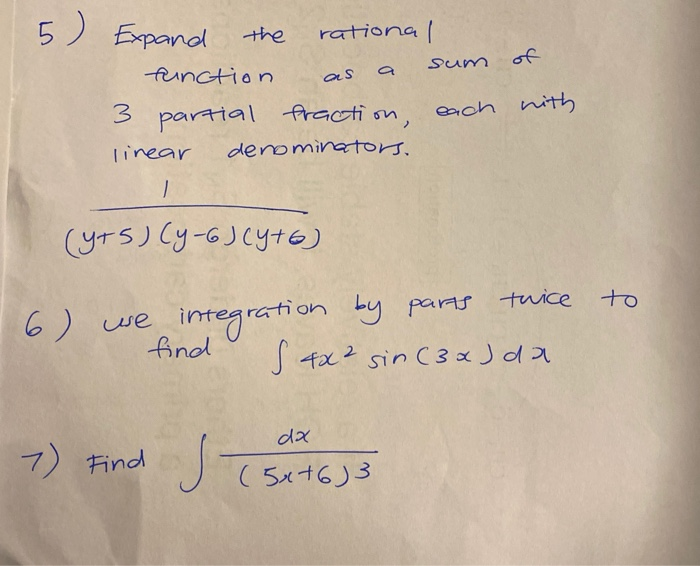 5) Expand the rational
function as a sum of
3 partial fraction, each with
linear denominators.
1
(y+5)(y-6)(y+6)
6) use integration by parts twice to
find ∫ 4x² sin(3x)dx
7) Find ∫ dx
(5x+6)3